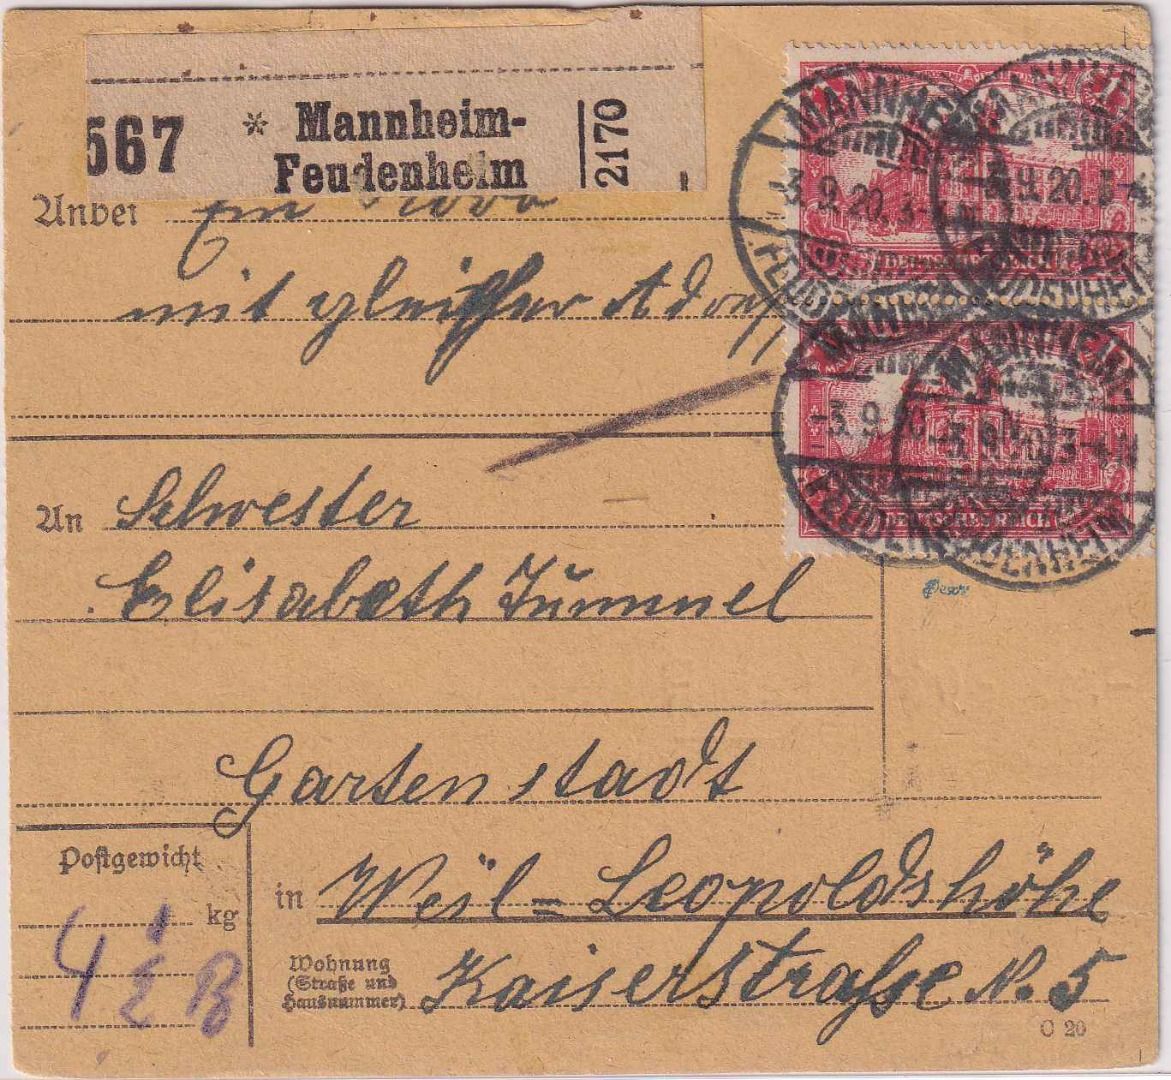 567 * Mannheim-
Feudenheim 2170
Anbei Ein
mit gleicher Adresse
An Schwester
Elisabeth Kümmel
Gartenstadt
Postgewicht
kg
4 ½
in Weil=Leopoldshöhe
Wohnung
(Straße und
Hausnummer)
Kaiserstraße N. 5
C 20
MANNHEIM-
-3.9.20.3-4 N
FEUDENHEIM
DEUTSCHES REICH